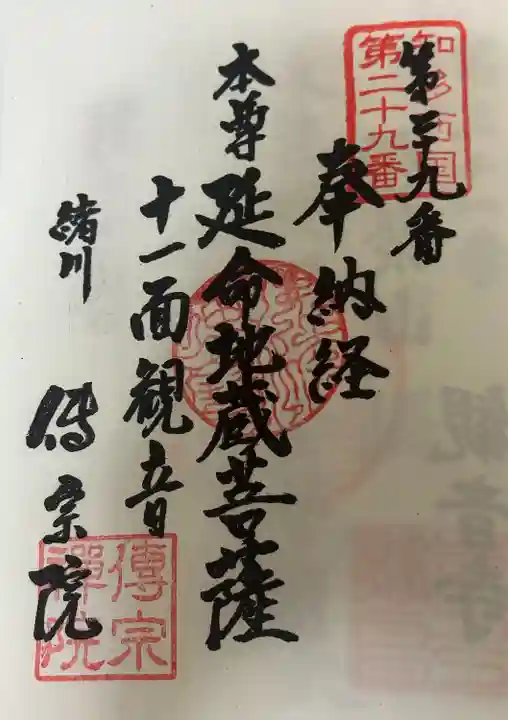 第二十九番
知多西国
第二十九番
奉納経
本尊 延命地蔵菩薩
十一面観音
緒川 傳宗院
傳宗
禅院